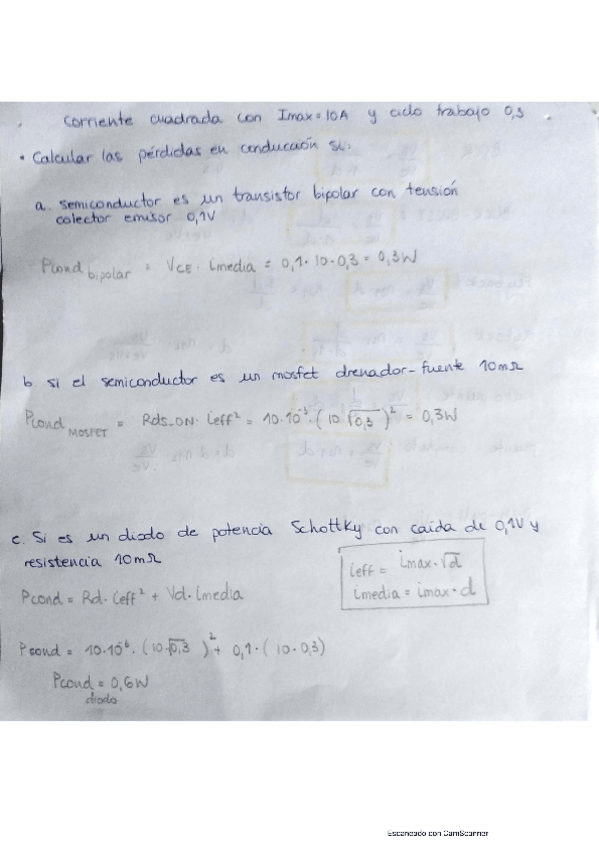 Corriente cuadrada con Imax=10A y ciclo trabajo 0,3
• Calcular las pérdidas en conducción si:
a. semiconductor es un transistor bipolar con tensión
colector emisor 0,1V
Pcond bipolar = VCE · imedia = 0,1·10·0,3 = 0,3W
b. si el semiconductor es un mosfet drenador-fuente 10mΩ
Pcond MOSFET = Rds_ON · ieff² = 10·10⁻³·(10√0,3)² = 0,3W
c. Si es un diodo de potencia Schottky con caída de 0,1V y
resistencia 10mΩ
ieff = imax·√d
imedia = imax·d
Pcond = Rd·ieff² + Vd·imedia
Pcond = 10·10⁻⁶·(10√0,3)² + 0,1·(10·0,3)
Pcond = 0,6W
diodo
Escaneado con CamScanner